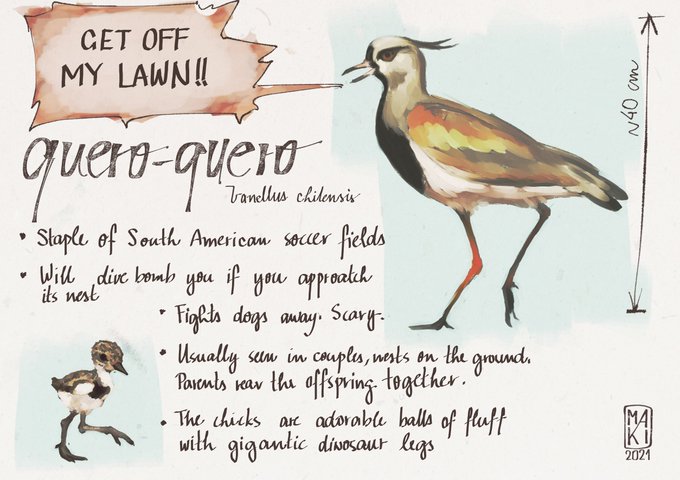 GET OFF
MY LAWN!!
quero-quero
Vanellus chilensis
~40 cm
• Staple of South American soccer fields
• Will dive bomb you if you approach
its nest
• Fights dogs away. Scary.
• Usually seen in couples, nests on the ground.
Parents rear the offspring together.
• The chicks are adorable balls of fluff
with gigantic dinosaur legs
MA
KI
2021